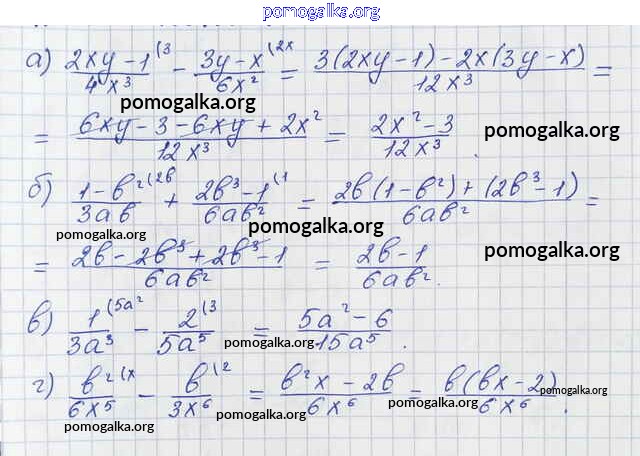 pomogalka.org
а) (2xy - 1)/(4x³) (3 - (3y - x)/(6x²) (2x = (3(2xy - 1) - 2x(3y - x))/(12x³) =
pomogalka.org
= (6xy - 3 - 6xy + 2x²)/(12x³) = (2x² - 3)/(12x³). pomogalka.org
б) (1 - b²)/(3ab) (2b + (2b³ - 1)/(6ab²) (1 = (2b(1 - b²) + (2b³ - 1))/(6ab²) =
pomogalka.org pomogalka.org
= (2b - 2b³ + 2b³ - 1)/(6ab²) = (2b - 1)/(6ab²). pomogalka.org
в) 1/(3a³) (5a² - 2/(5a⁵) (3 = (5a² - 6)/(15a⁵).
pomogalka.org pomogalka.org
г) b²/(6x⁵) (x - b/(3x⁶) (2 = (b²x - 2b)/(6x⁶) = b(bx - 2)/(6x⁶).
pomogalka.org pomogalka.org pomogalka.org pomogalka.org